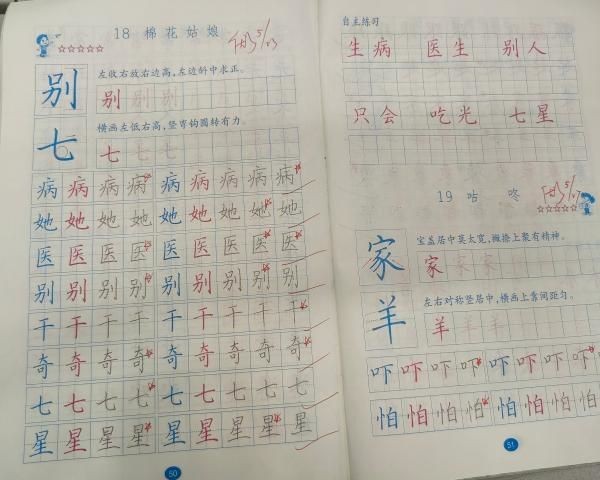 18 棉花姑娘
别 左收右放右边高,左边斜中求正。
别 别 别
七 横画左低右高,竖弯钩圆转有力。
七 七
病 病 病 病 病 病 病 病 病
她 她 她 她 她 她 她 她 她
医 医 医 医 医 医 医 医 医
别 别 别 别 别 别 别 别 别
干 干 干 干 干 干 干 干 干
奇 奇 奇 奇 奇 奇 奇 奇 奇
七 七 七 七 七 七 七 七 七
星 星 星 星 星 星 星 星 星
50
自主练习
生病 医生 别人
只会 吃光 七星
19 咕咚
家 宝盖居中莫太宽,撇捺上聚有精神。
家 家 家
羊 左右对称竖居中,横画上靠间距匀。
羊 羊 羊
吓 吓 吓 吓 吓 吓 吓 吓
怕 怕 怕 怕 怕 怕 怕 怕
51